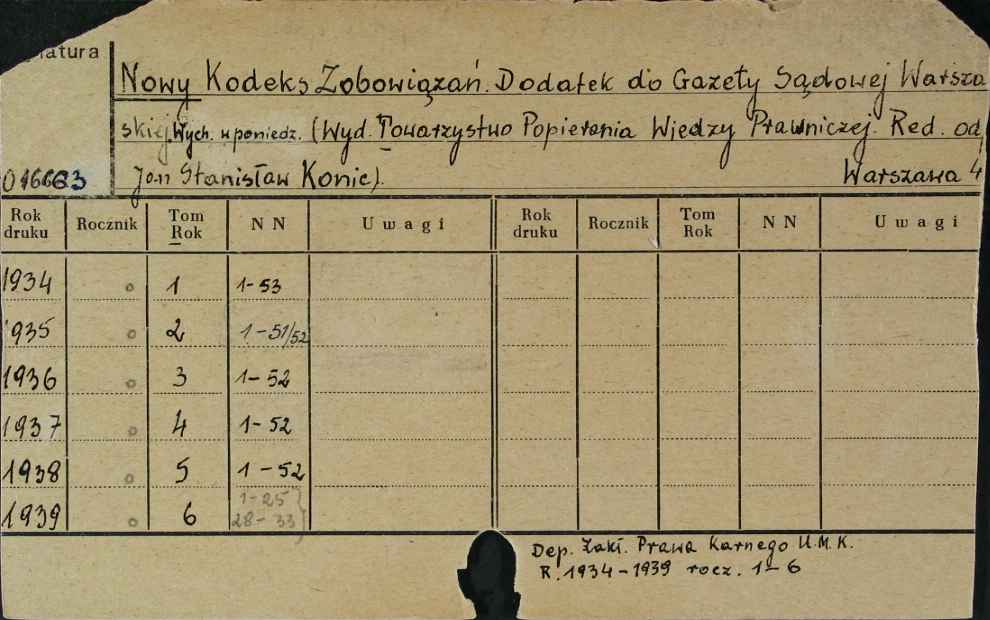 natura
Nowy Kodeks Zobowiązań. Dodatek do Gazety Sądowej Warsza
skiej. Wych. w poniedz. (Wyd. Towarzystwo Popierania Wiedzy Prawniczej. Red. od,
016663 Jan Stanisław Konic). Warszawa 4
Rok druku Rocznik Tom Rok NN Uwagi Rok druku Rocznik Tom Rok NN Uwagi
1934 o 1 1-53
1935 o 2 1-51/52
1936 o 3 1-52
1937 o 4 1-52
1938 o 5 1-52
1939 o 6 1-25 28-33
Dep. Zakł. Prawa Karnego U.M.K.
R. 1934-1939 rocz. 1-6